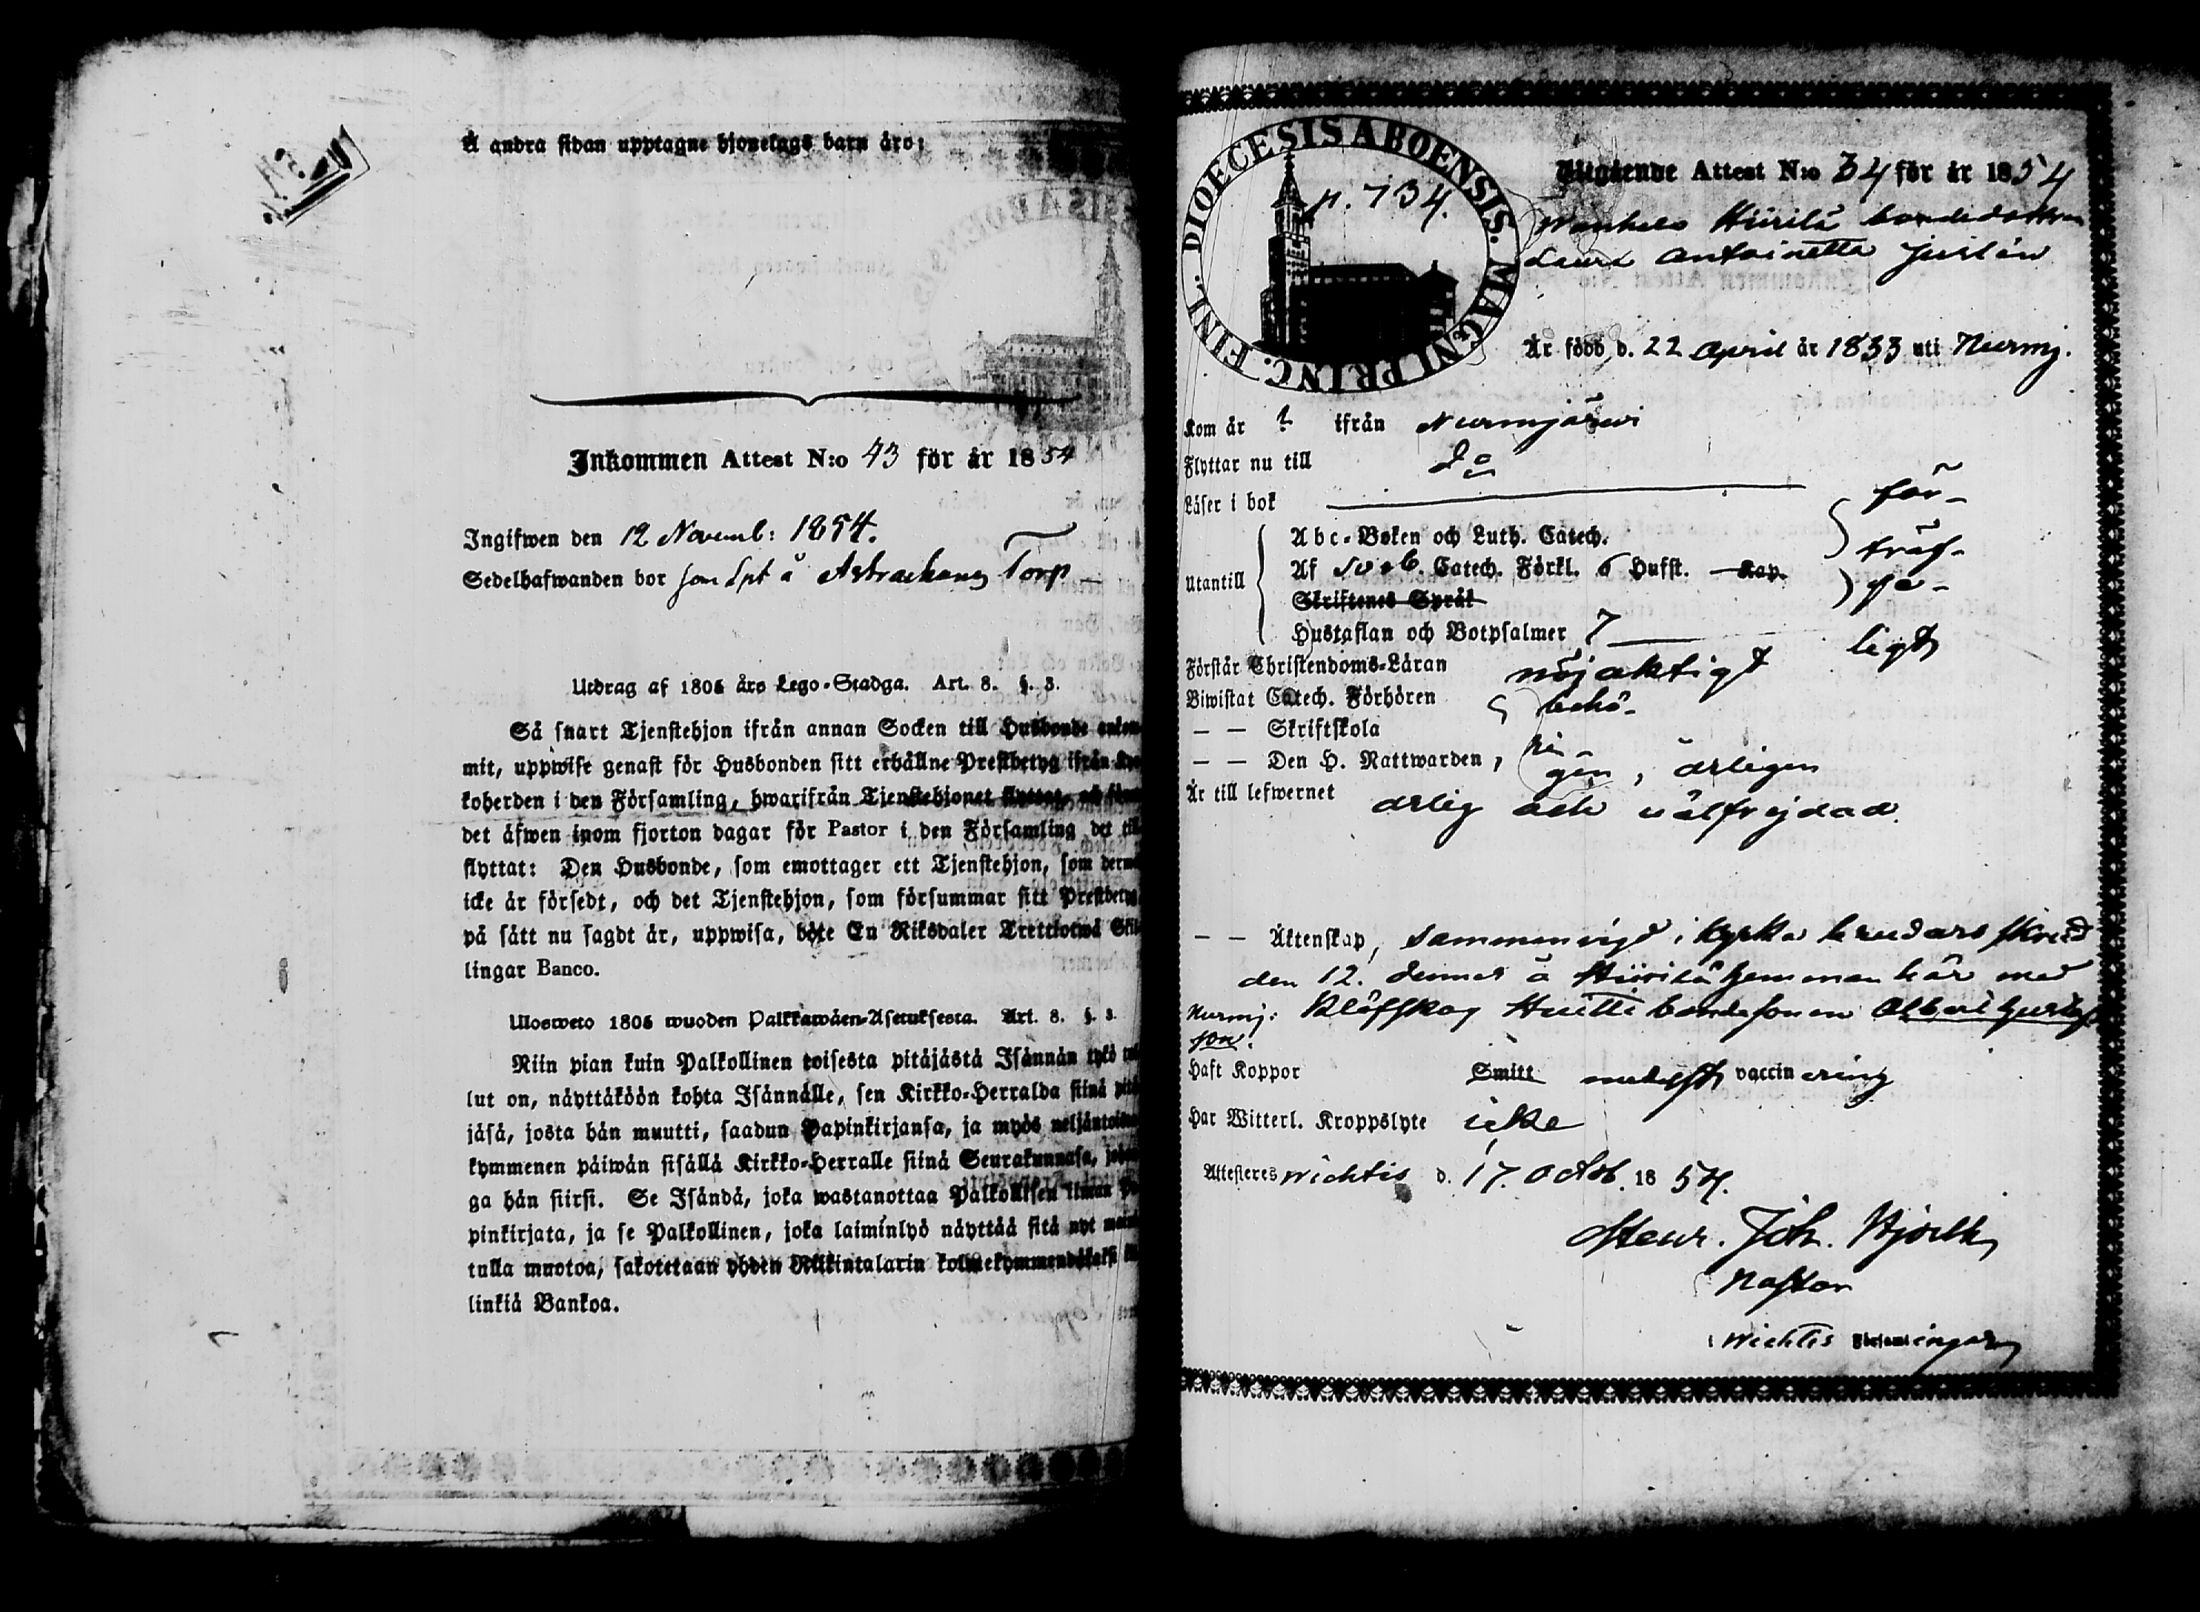 Å andra sidan upptagne hjonelags barn äro:
Inkommen Attest N:o 43 för år 1854
Ingifwen den 12 Novemb: 1854.
Sedelhafwanden bor som Spt å Astrackans Torp
Utdrag af 1805 års Lego-Stadga. Art. 8. §. 3.
Så snart Tjenstehjon ifrån annan Socken till Husbonde ankom-
mit, uppwise genast för Husbonden sitt erhållne Prestbetyg ifrån Kyr-
koherden i den Församling, hwarifrån Tjenstehjonet flyttat, och
det äfwen inom fjorton dagar för Pastor i den Församling det till
flyttat: Den Husbonde, som emottager ett Tjenstehjon, som dermed
icke är försedt, och det Tjenstehjon, som försummar sitt Prestbetyg
på sätt nu sagdt är, uppwisa, böte En Riksdaler Trettiotwå Skil-
lingar Banco.
Ulosweto 1805 wuoden Palkkawäen-Asetuksesta. Art. 8. §. 3.
Niin pian kuin Palkollinen toisesta pitäjästä Isännän tykö tul
lut on, näyttäköön kohta Isännälle, sen Kirkko-Herralda siinä pitä
jäsä, josta hän muutti, saadun Papinkirjansa, ja myös neljäntoista
kymmenen päiwän sisällä Kirkko-Herralle siinä Seurakunnasa, johon
ga hän siirsi. Se Isändä, joka wastanottaa Palkollisen ilman Pa
pinkirjata, ja se Palkollinen, joka laiminlyö näyttää sitä nyt mainit
tulla muotoa, sakotetaan yhden Riikintalarin kolmekymmendäkaksi kil
linkiä Bankoa.
DIOECESIS ABOENSIS. MAGNI PRINC. FINL.
p. 734.
Utgående Attest N:o 34 för år 1854
Wanhala Hiirilä bondedottren
Laura Antoinetta Justin
Är född d. 22 April år 1833 uti Nurmj.
Kom år ifrån Nurmijärwi
Flyttar nu till do
Läser i bok för-
Abc-Boken och Luth. Catech. träf-
Utantill Af Sveb. Catech. Förkl. 6 Hufst. Kap. fe-
Skriftenes Språk
Hustaflan och Botpsalmer 7 ligt
Förstår Christendoms-Läran nöjaktigt
Biwistat Catech. Förhören behö-
— — Skriftskola ri-
— — Den H. Nattwarden, gen, årligen
Är till lefwernet ärlig och välfrejdad.
— — Äktenskap, sammanvigd i kyrko brudars skrud
den 12. dennes å Hiirilä hemman här med
Nurmj: Klöfskog Huitti bondesonen Albert Gustafs
son.
Haft Koppor Smitt medelst vaccinering
Har Witterl. Kroppslyte icke
Attesteres Wichtis d. 17. Octob. 1854.
Henr. Joh. Hjorth
Pastor
i Wichtis Församlingar